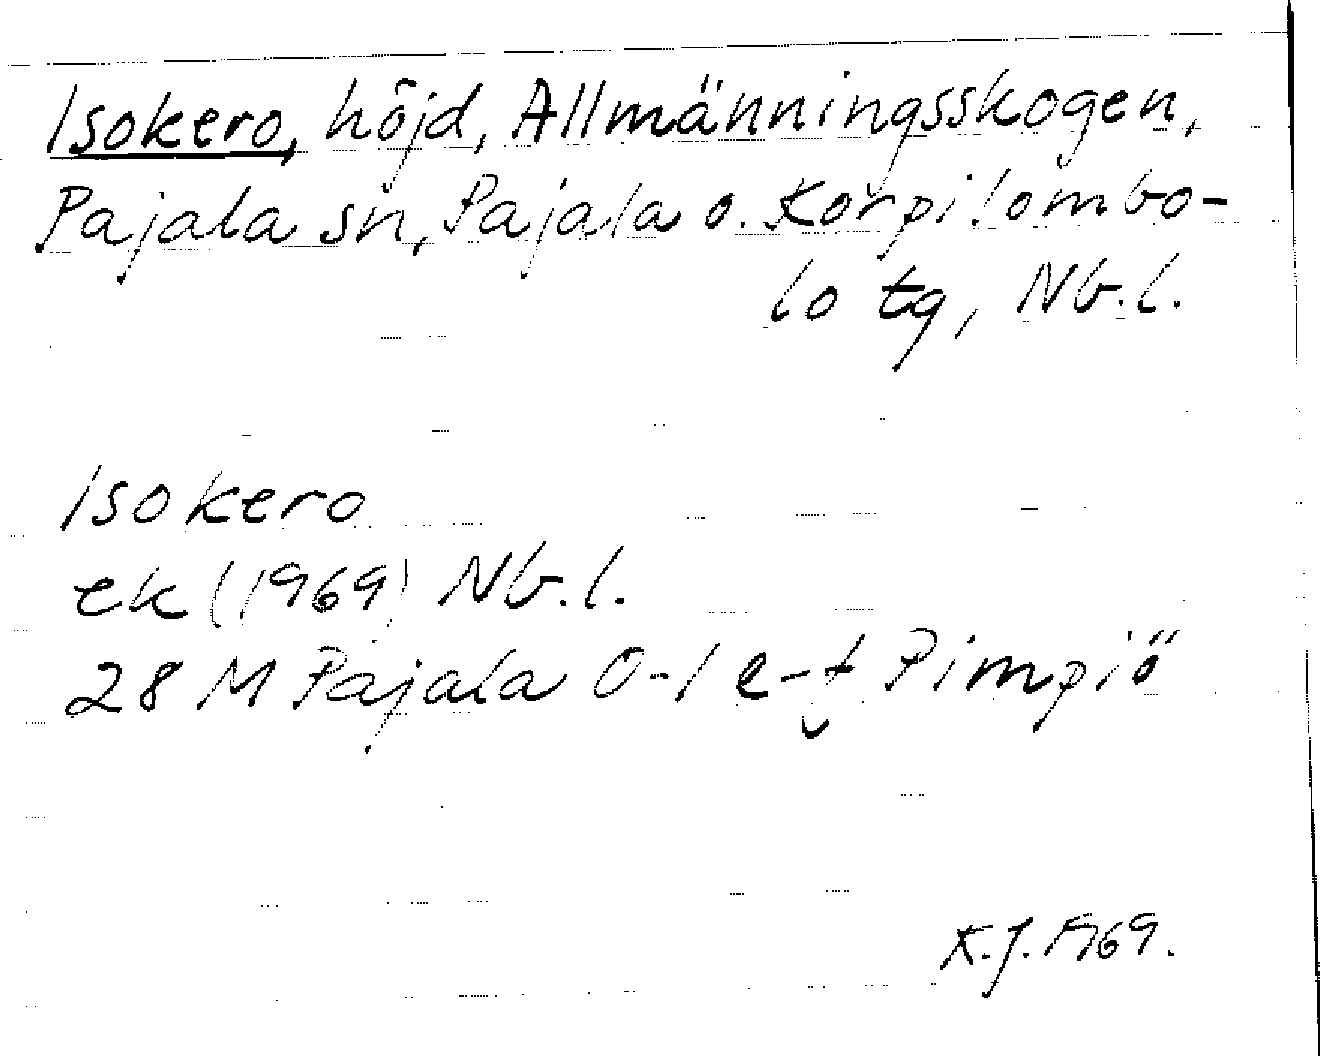 Isokero, höjd, Allmänningsskogen,
Pajala sn, Pajala o. Korpilombo-
lo tg, Nb.l.
Isokero
ek (1969) Nb.l.
28 M Pajala O-l e-t Pimpiö
K.J. 1969.